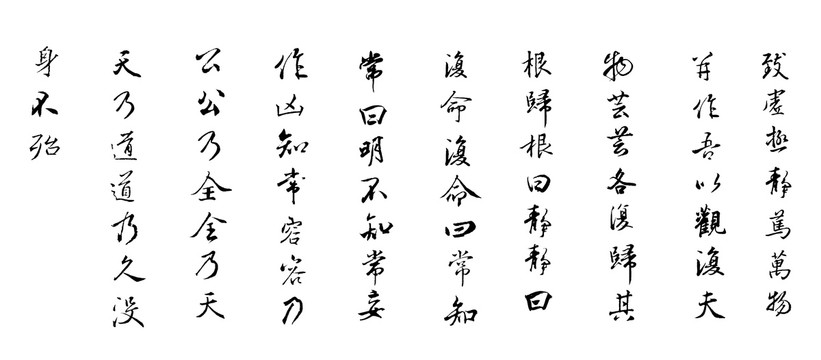 致虛極靜篤萬物
並作吾以觀復夫
物芸芸各復歸其
根歸根曰靜靜曰
復命復命曰常知
常曰明不知常妄
作凶知常容容乃
公公乃全全乃天
天乃道道乃久沒
身不殆